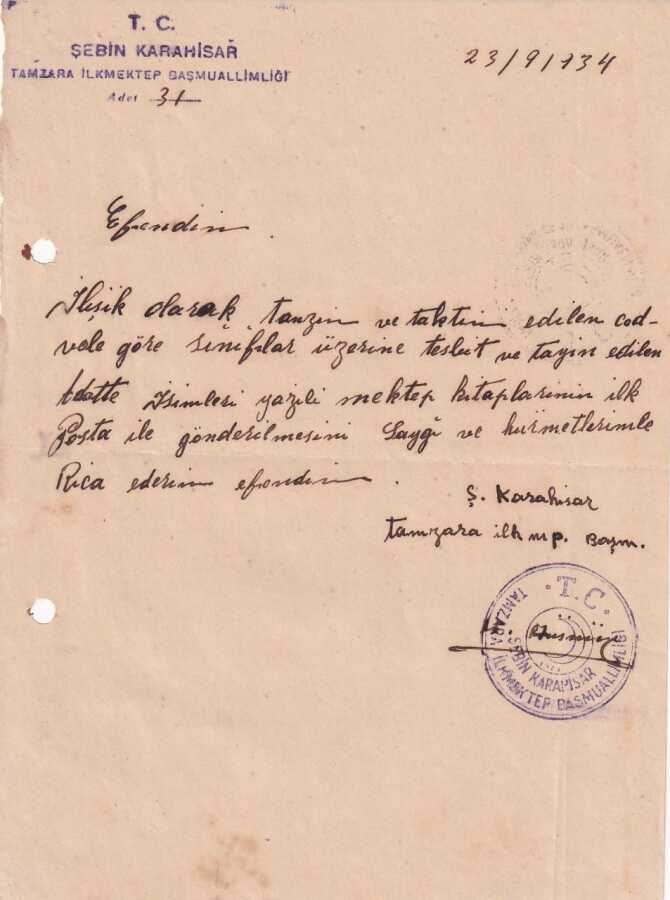 T. C.
ŞEBİN KARAHİSAR
TAMZARA İLKMEKTEP BAŞMUALLİMLİĞİ
Adet 31
23/9/934
Efendim.
İlişik olarak, tanzim ve taktim edilen cod-
vele göre sınıflar üzerine tesbit ve tayin edilen
Adette İsimleri yazılı mektep kitaplarının ilk
Posta ile gönderilmesini Saygı ve hürmetlerimle
Rica ederim efendim.
Ş. Karahisar
tamzara ilk mp. Başm.
T. C.
TAMZARA İLKMEKTEP BAŞMUALLİMLİĞİ
ŞEBİN KARAHİSAR